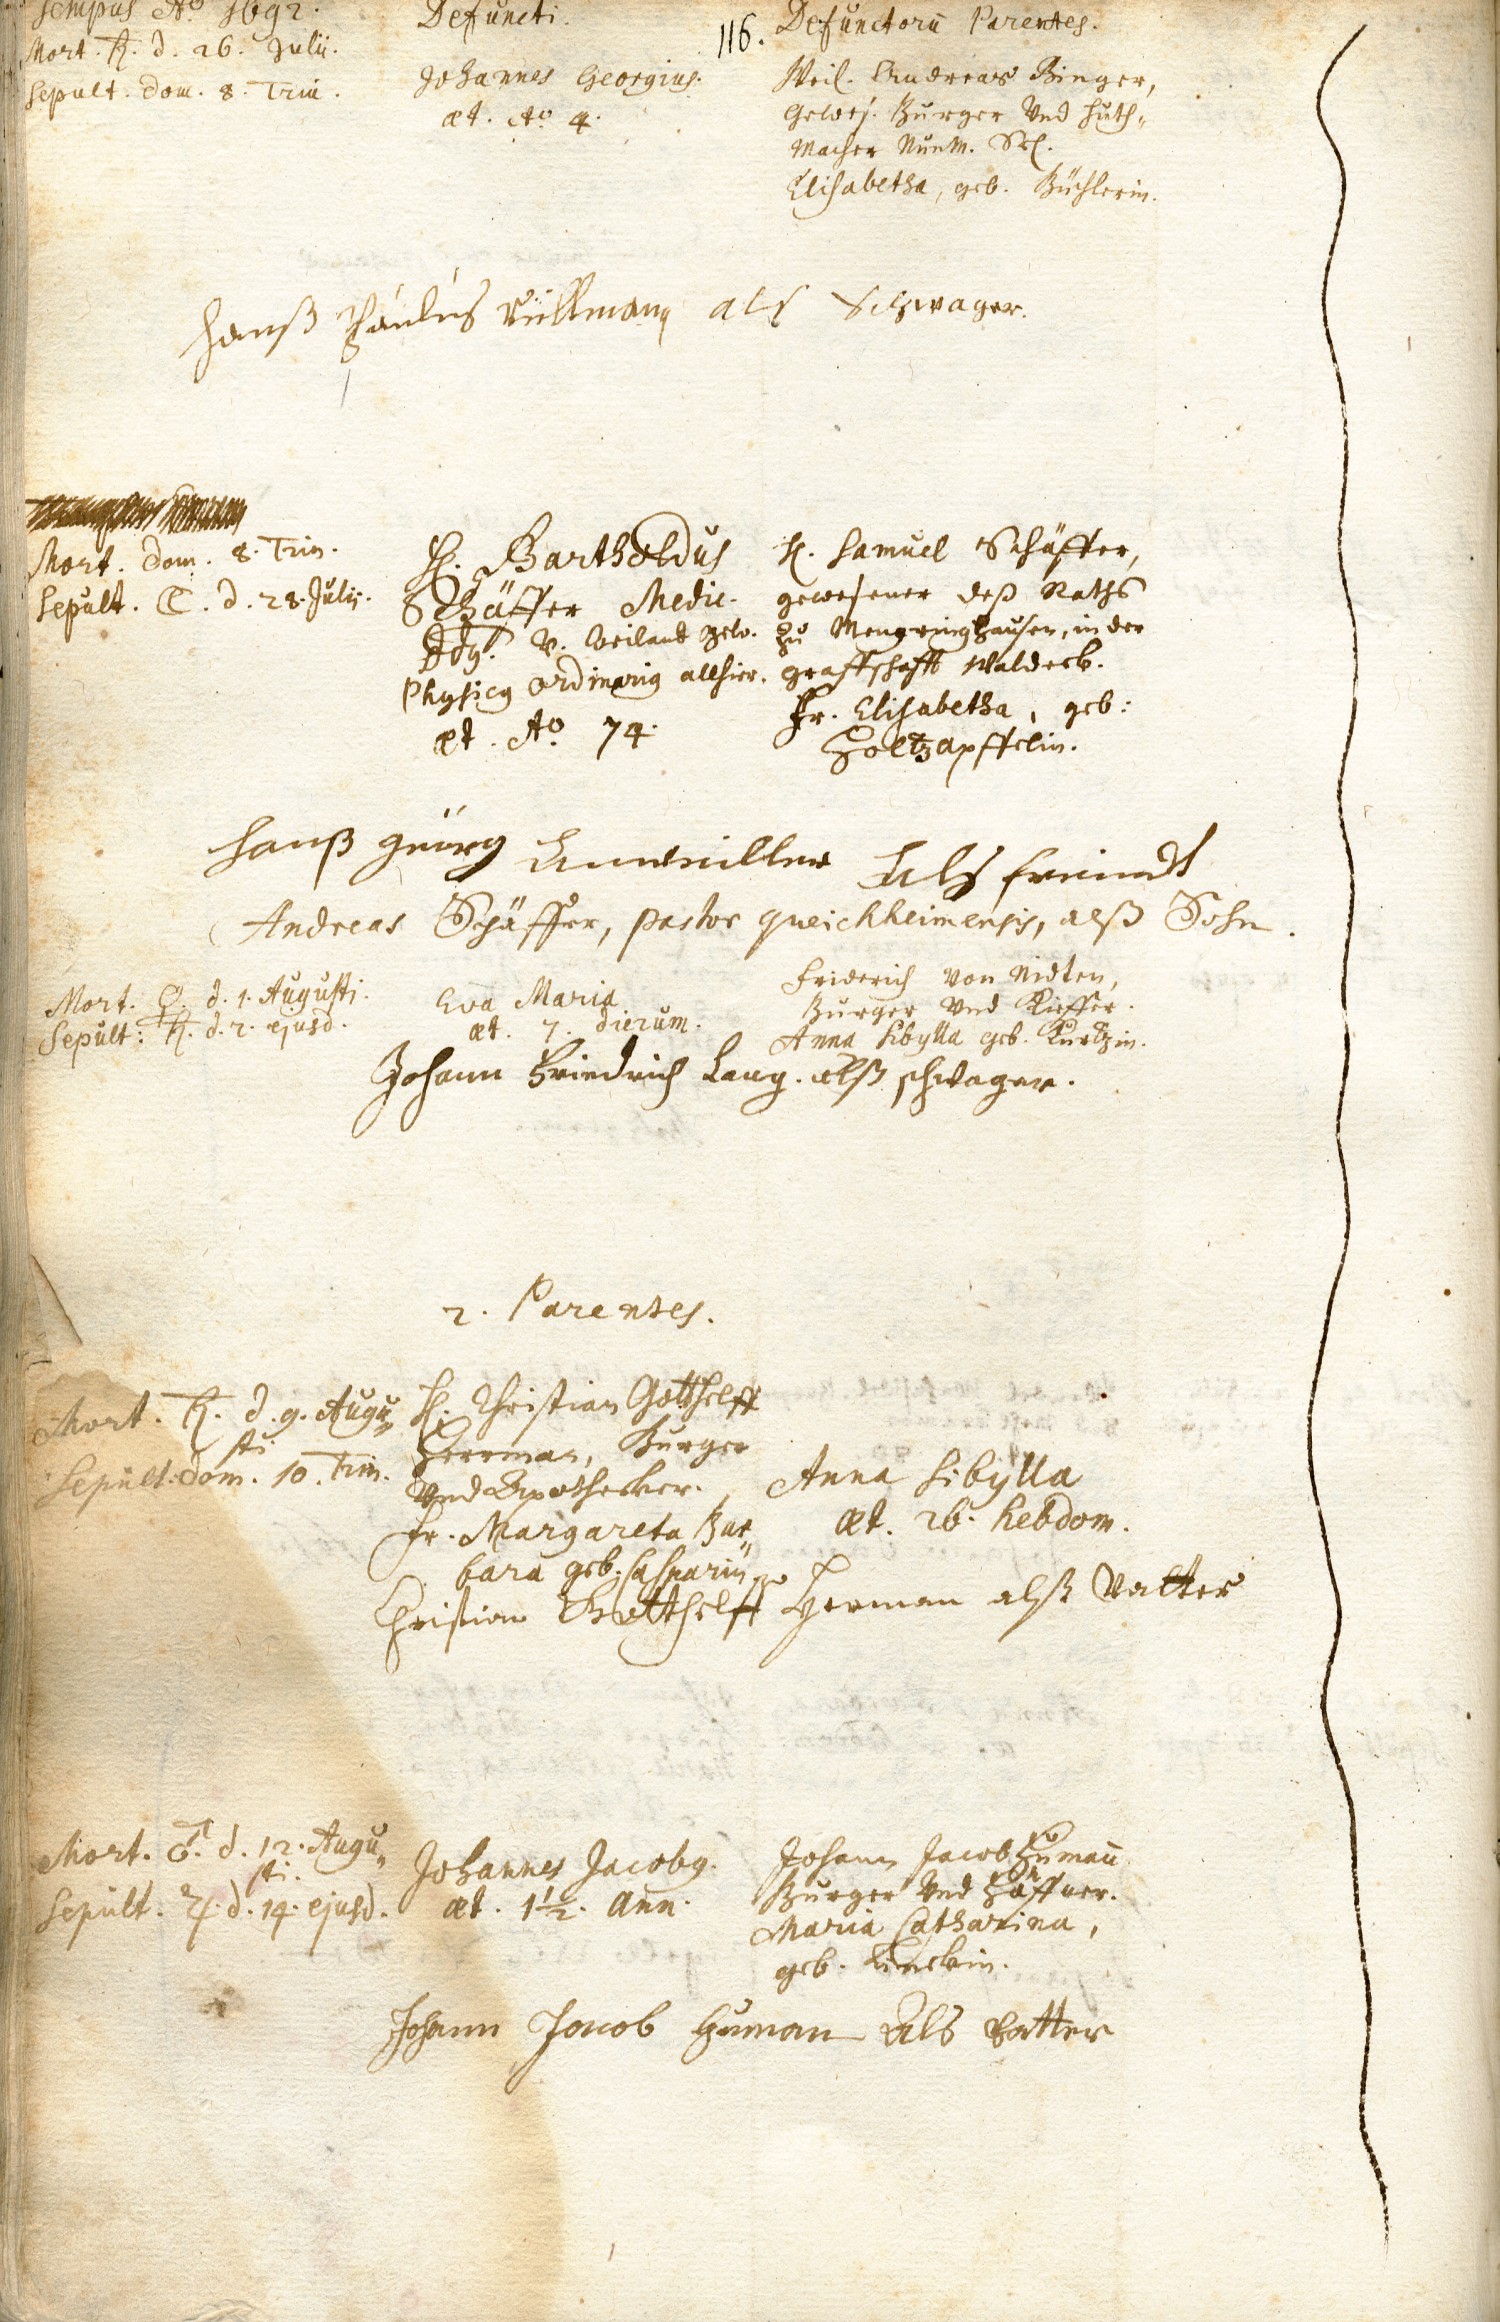 Tempus Aō 1692.
Defuncti.
116.
Defunctorū Parentes.
Mort. ♄. d. 26. Julii.
Sepult. Dom. 8. Trin.
Johannes Georgius.
æt. Aō 4.
Weil. Andreas Binger,
Gewes. Burger Vnd Huth-
Macher
Elisabetha, geb. Büchlerin.
Hanß Paulus Vüllmann als Schwager.
Mort. Dom. 8. Trin.
Sepult. ☾. d. 28. Julii.
H. Bartholdus
Schäffer Medic.
V. weiland gew.
Physicus Ordinarius allhier.
æt. Aō. 74.
H. Samuel Schäffer,
gewesener deß Raths
zu Mengeringhausen, in der
Graffschafft Waldeck.
Fr. Elisabetha, geb:
Holtzapffelin.
Hanß Georg Als freündt
Andreas Schäffer, pastor queichheimensis, alß Sohn.
Mort. d. 1. Augusti.
Sepult: d. 2. ejusd.
Eva Maria
æt. 7. dierum.
Friderich von Nidten,
Burger Vnd Kieffer.
Anna Sibylla geb. Kurtzin.
Johann Friedrich Lang. alß schwager.
2. Parentes.
Mort. ♄. d. 9. Augu-
sti
Sepult. Dom. 10. Trin.
H. Christian Gotthelff
Herrman, Burger
Vnd Apothecker.
Fr. Margareta Bar-
bara geb. Casparin
Anna Sibylla
æt. 26. hebdom.
Christian Gotthelff Herman alß Vatter
Mort. ♂. d. 12. Augu-
sti.
Sepult. ♃. d. 14. ejusd.
Johannes Jacobus.
æt. 1½. Ann.
Johann Jacob Humañ
Burger Vnd Haffner.
Maria Catharina,
geb.
Johann Jacob Human Als Vatter